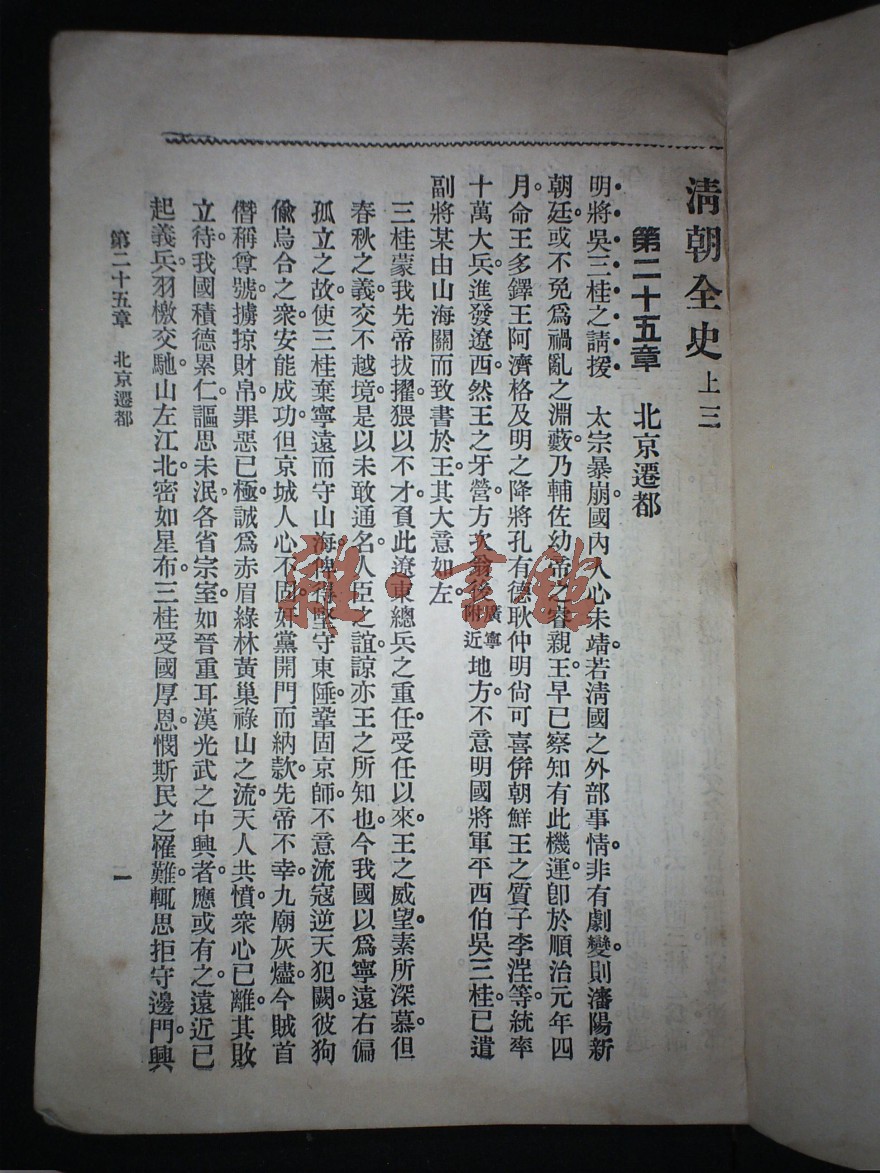 清朝全史 上三
第二十五章 北京遷都
明將吳三桂之請援 太宗暴崩。國內人心未靖。若淸國之外部事情。非有劇變。則瀋陽新
朝廷。或不免爲禍亂之淵藪。乃輔佐幼帝之睿親王。早已察知有此機運。卽於順治元年四
月。命王多鐸王阿濟格及明之降將孔有德耿仲明尙可喜。倂朝鮮王之質子李淏等。統率
十萬大兵。進發遼西。然王之牙營。方次翁後廣寧附近地方。不意明國將軍平西伯吳三桂。已遣
副將某由山海關而致書於王。其大意如左。
三桂蒙我先帝拔擢。猥以不才。負此遼東總兵之重任。受任以來。王之威望。素所深慕。但
春秋之義。交不越境。是以未敢通名。人臣之誼。諒亦王之所知也。今我國以爲寧遠右偏
孤立之故。使三桂棄寧遠而守山海。俾得堅守東陲。鞏固京師。不意流寇逆天犯闕。彼狗
偸烏合之衆。安能成功。但京城人心不固。奸黨開門而納款。先帝不幸。九廟灰燼。今賊首
僭稱尊號。擄掠財帛。罪惡已極。誠爲赤眉綠林黃巢祿山之流。天人共憤。衆心已離。其敗
立待。我國積德累仁。謳思未泯。各省宗室。如晉重耳漢光武之中興者。應或有之。遠近已
起義兵。羽檄交馳。山左江北。密如星布。三桂受國厚恩。憫斯民之罹難。輒思拒守邊門。興
第二十五章 北京遷都
一
雜·書館